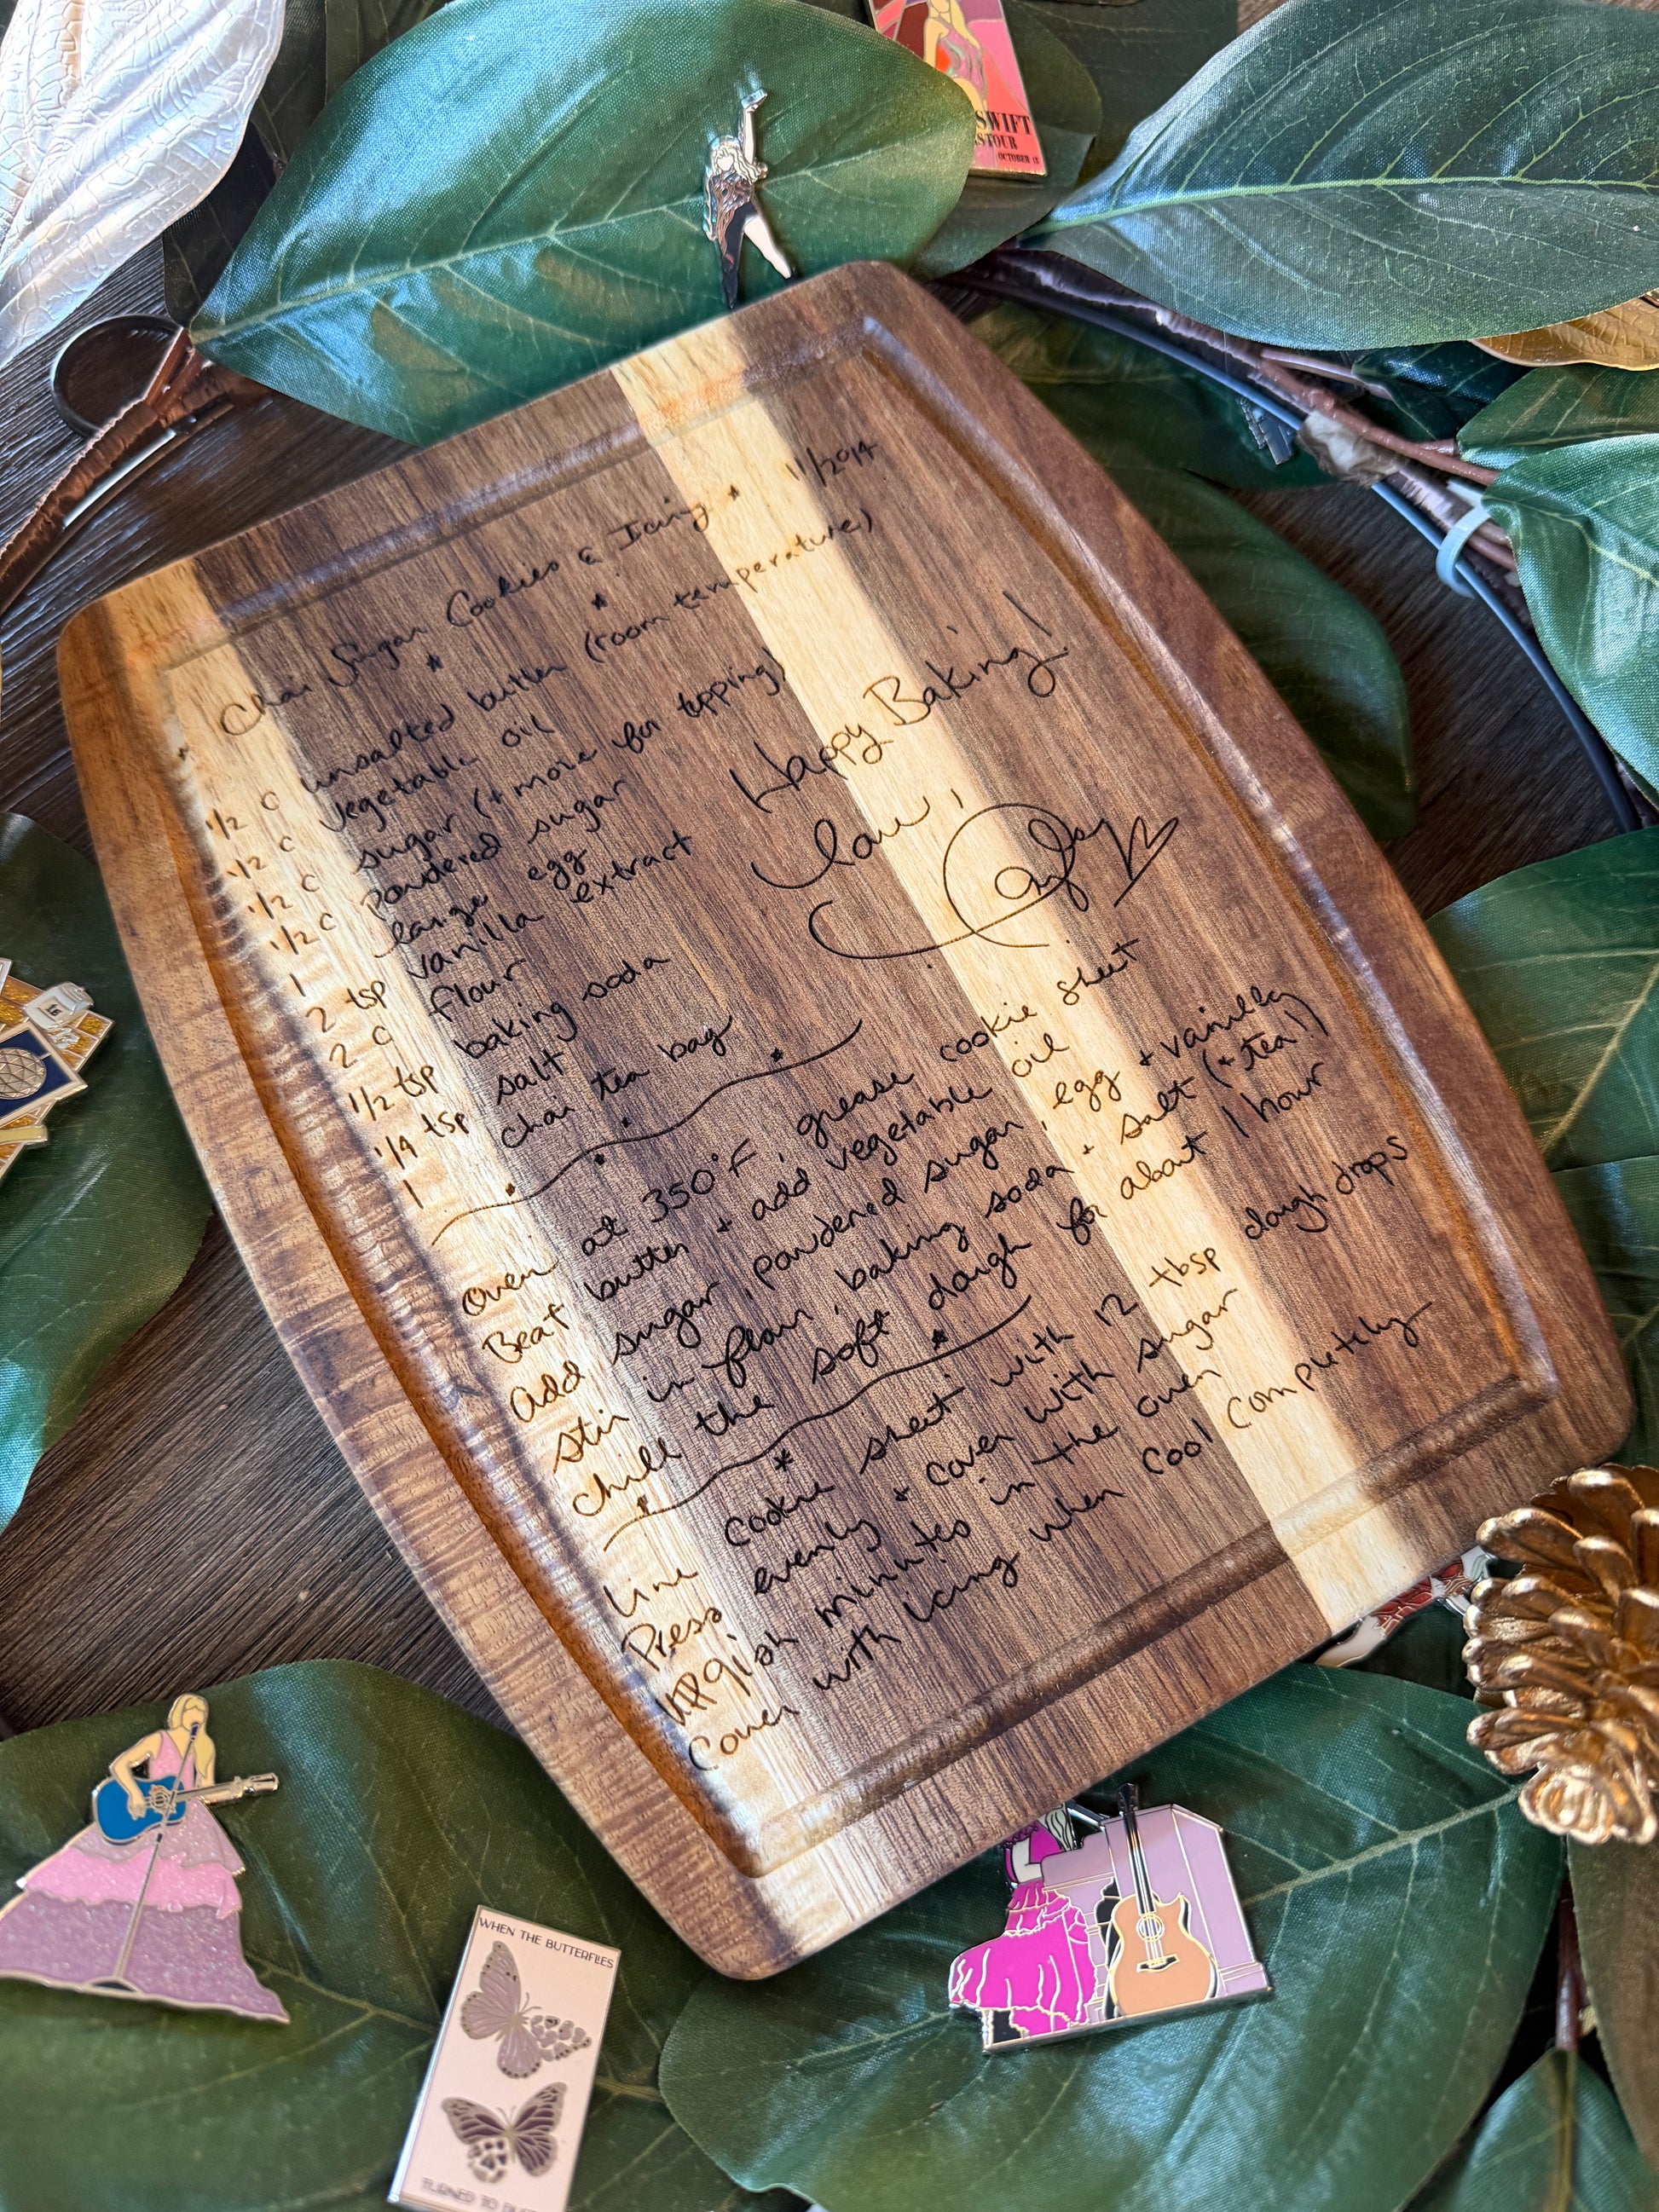 SWIFT
S TOUR
OCTOBER 13
Chai Sugar Cookies & Icing * 11/2014
1/2 c unsalted butter (room temperature)
1/2 c vegetable oil
1/2 c sugar (+ more for topping)
1/2 c powdered sugar
1 large egg
2 tsp vanilla extract
2 c flour
1/2 tsp baking soda
1/4 tsp salt
1 chai tea bag
Happy Baking!
Love,
Oven at 350°F, grease cookie sheet
Beat butter + add vegetable oil
Add sugar, powdered sugar, egg + vanilla
stir in flour, baking soda + salt (+ tea!)
chill the soft dough for about 1 hour
Line cookie sheet with 12 tbsp dough drops
Press evenly + cover with sugar
9ish minutes in the oven
Cover with icing when cool completely
WHEN THE BUTTERFLIES
TURNED TO